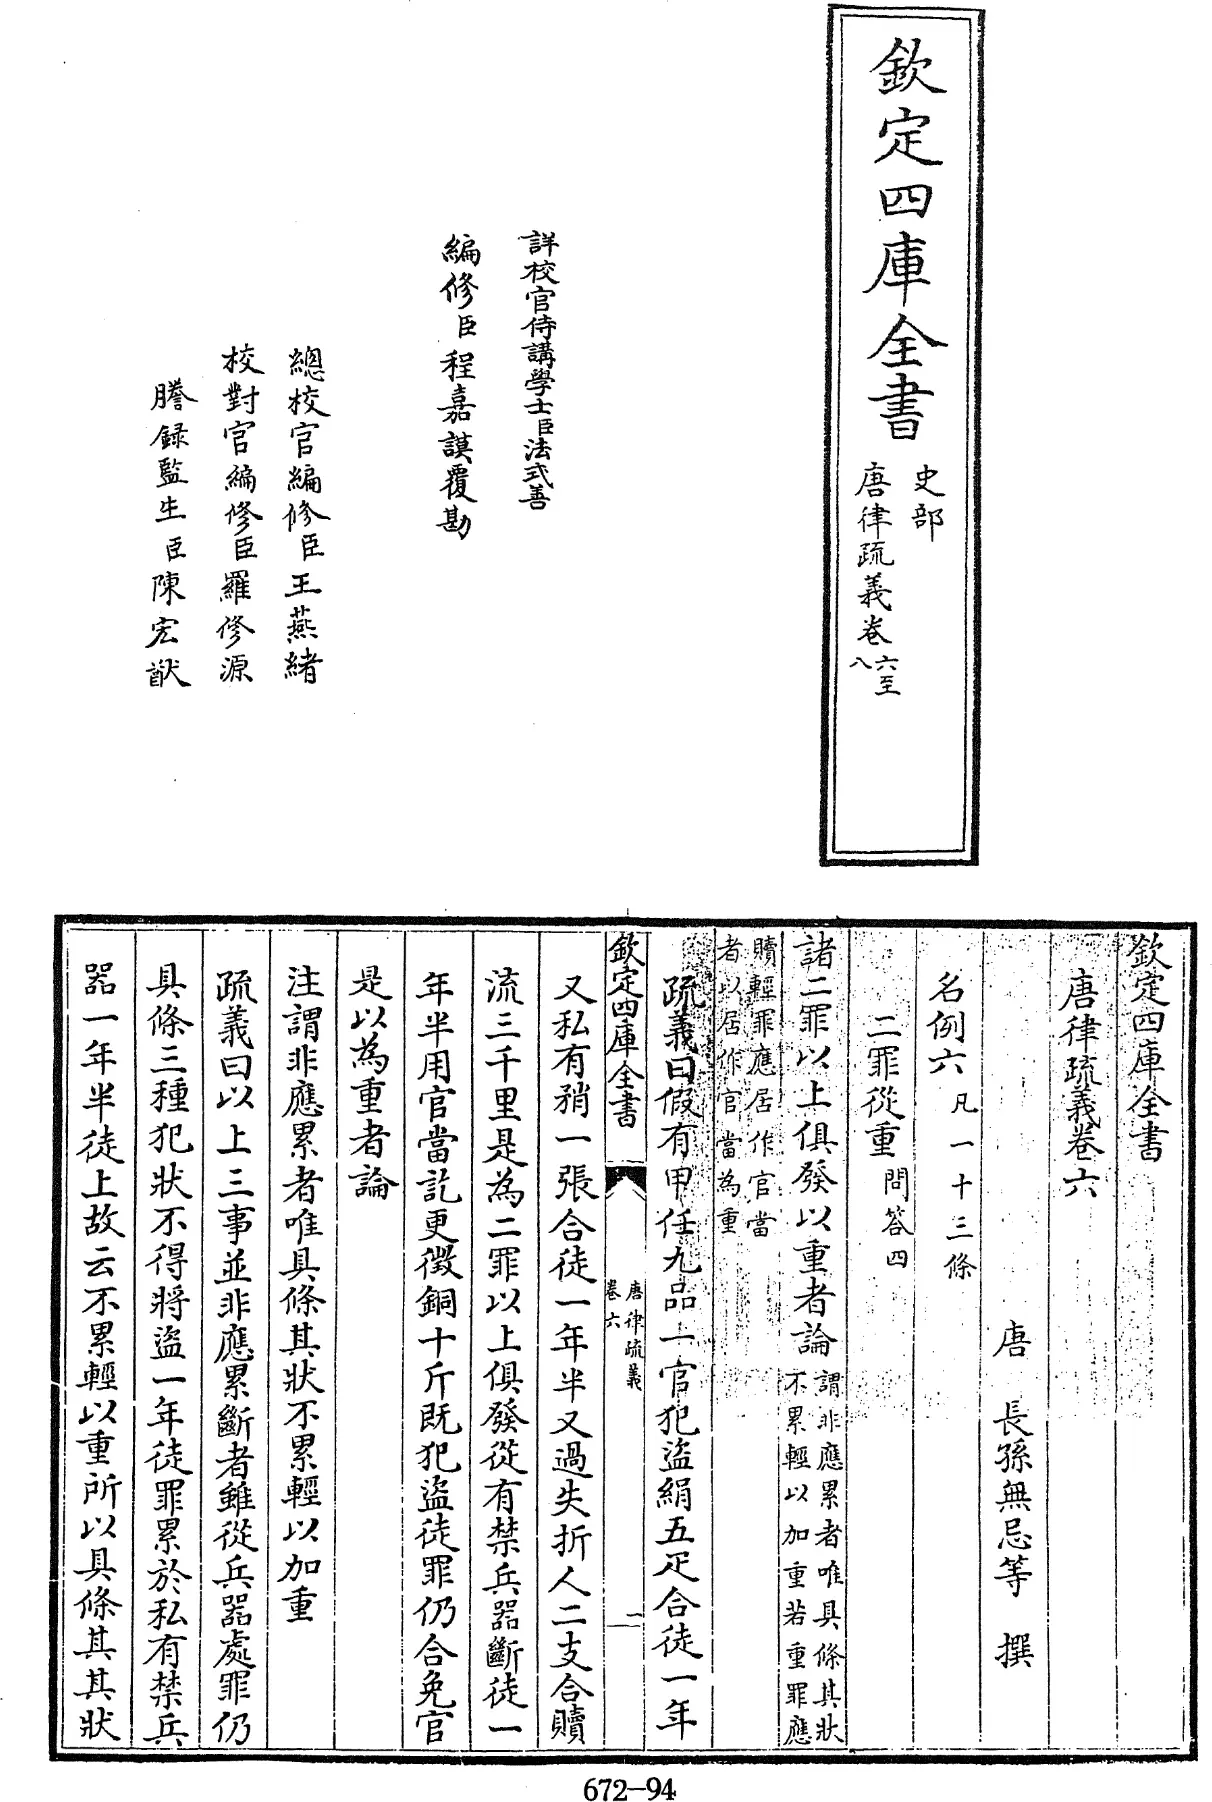 欽定四庫全書
史部
唐律疏義卷六至八
詳校官侍講學士臣法式善
編修臣程嘉謨覆勘
總校官編修臣王燕緒
校對官編修臣羅修源
謄錄監生臣陳宏猷
欽定四庫全書
唐律疏義卷六
唐 長孫無忌等 撰
名例六 凡一十三條
二罪從重 問答四
諸二罪以上俱發以重者論 謂非應累者唯具條其狀不累輕以加重若重罪應
贖輕罪應居作官當者以居作官當為重
疏義曰假有甲任九品一官犯盜絹五疋合徒一年
欽定四庫全書
唐律疏義
卷六
一
又私有矟一張合徒一年半又過失折人二支合贖
流三千里是為二罪以上俱發從有禁兵器斷徒一
年半用官當訖更徵銅十斤既犯盜徒罪仍合免官
是以為重者論
注謂非應累者唯具條其狀不累輕以加重
疏義曰以上三事並非應累斷者雖從兵器處罪仍
具條三種犯狀不得將盜一年徒罪累於私有禁兵
器一年半徒上故云不累輕以重所以具條其其狀
672-94